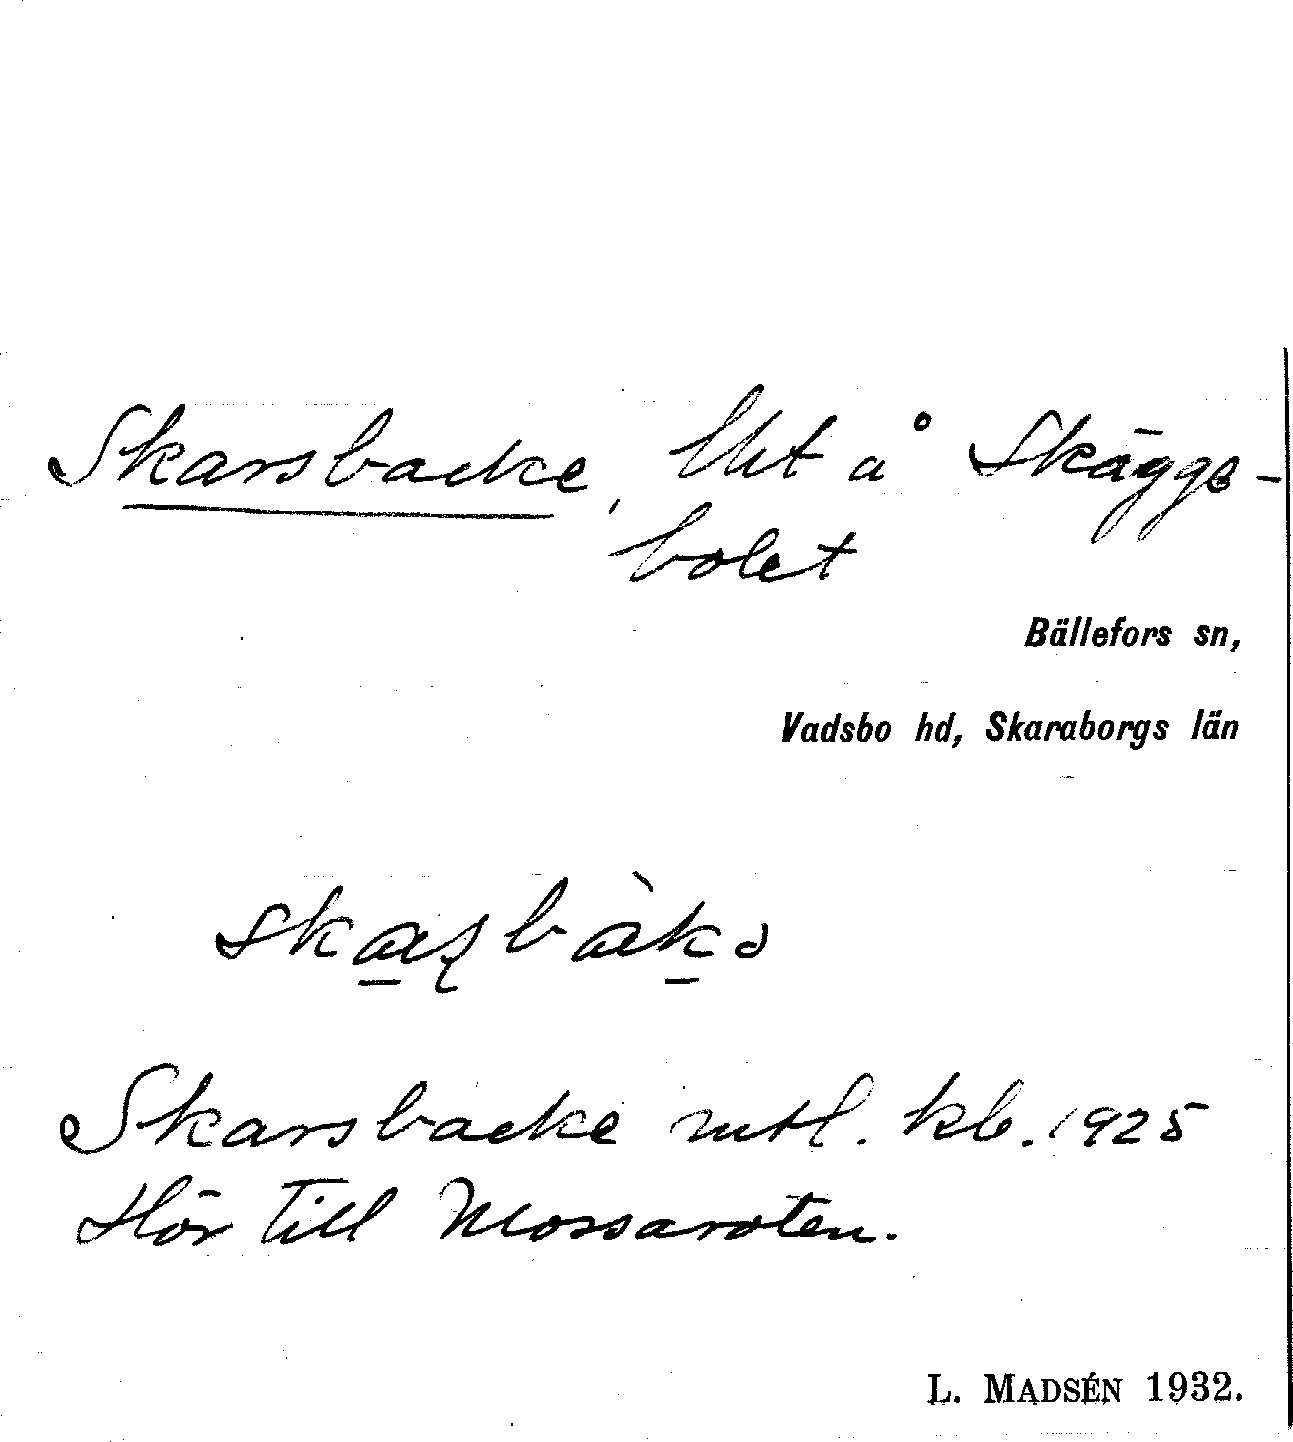 Skarsbacke, lht å Skägge-
bolet
Bällefors sn,
Vadsbo hd, Skaraborgs län
Skarsbacke mtl. kb. 1925
Hör till Mossaroten.
L. MADSÉN 1932.